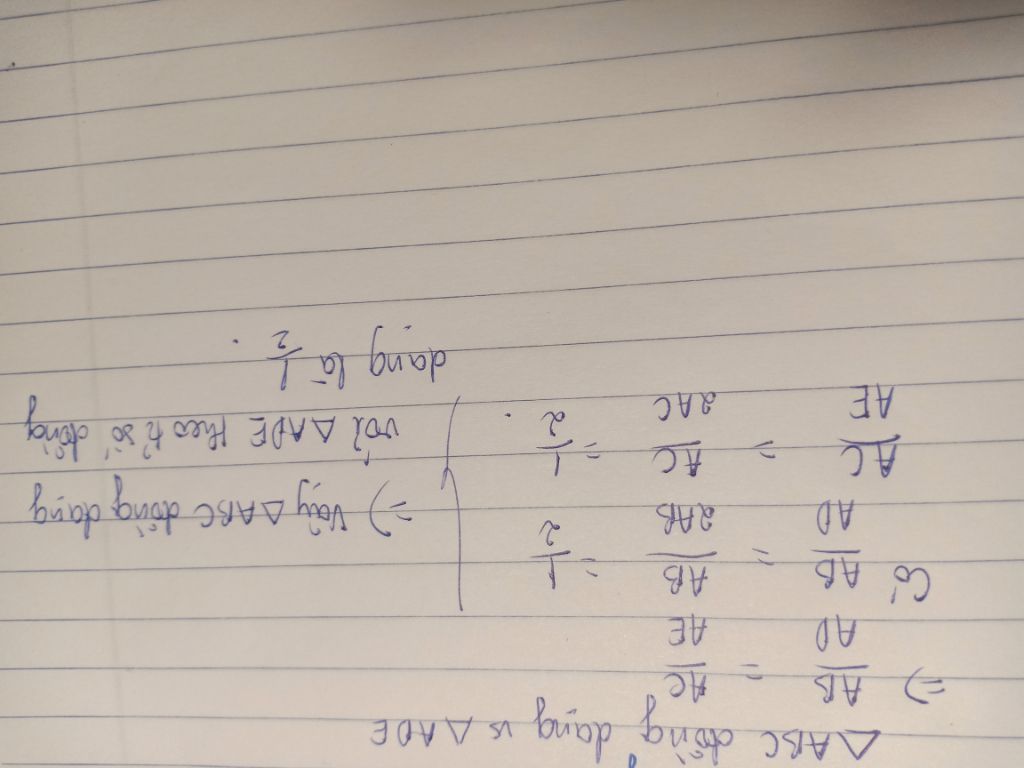 △ABC đồng dạng vs △ADE
=> AB/AD = AC/AE
Có AB/AD = AB/2AB = 1/2
AC/AE = AC/2AC = 1/2 .
=) Vậy △ABC đồng dạng
với △ADE theo tỉ số đồng
dạng là 1/2 .